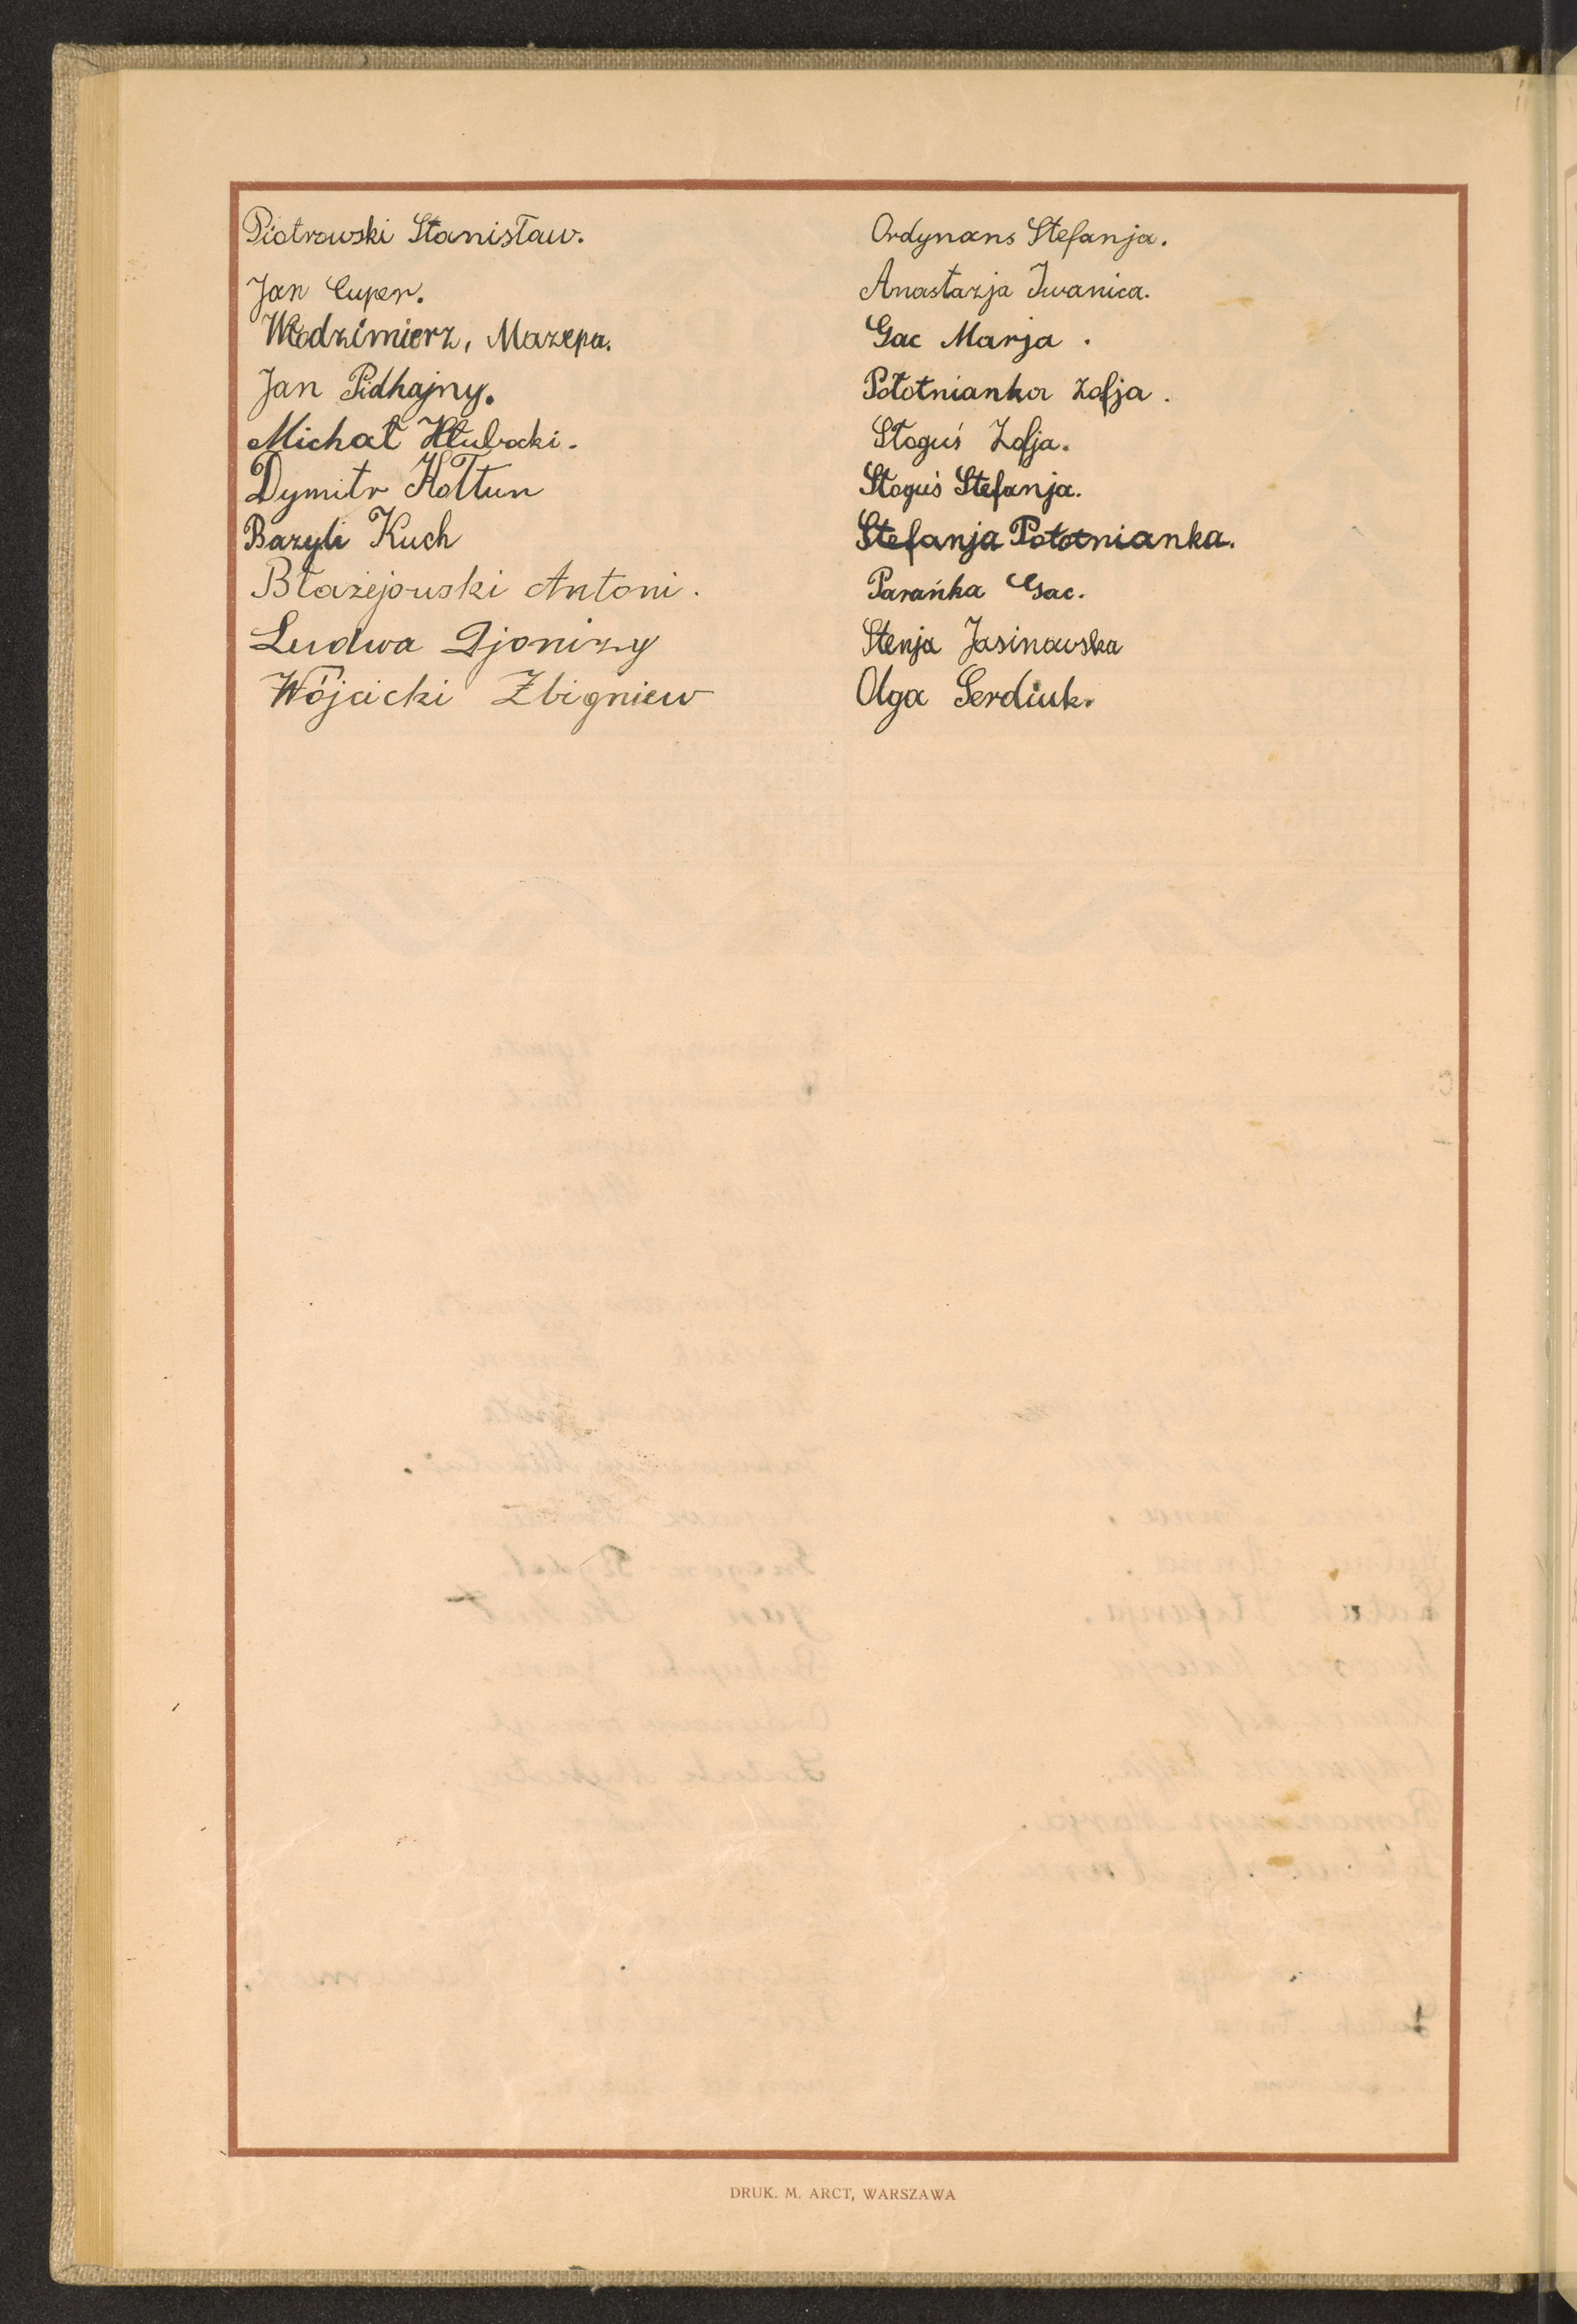 Piotrowski Stanisław.
Jan Cuper.
Włodzimierz, Mazepa.
Jan Pidhajny.
Michał Hłubocki.
Dymitr Kołtun
Bazyli Kuch
Błażejowski Antoni.
Ludwa Djonizy
Wójcicki Zbigniew
Ordynans Stefanja.
Anastazja Iwanica.
Gac Marja.
Połotnianka Zofja.
Stoguś Zofja.
Stoguś Stefanja.
Stefanja Połotnianka.
Parańka Gac.
Stenja Jasinowska
Olga Serdiuk.
DRUK. M. ARCT, WARSZAWA